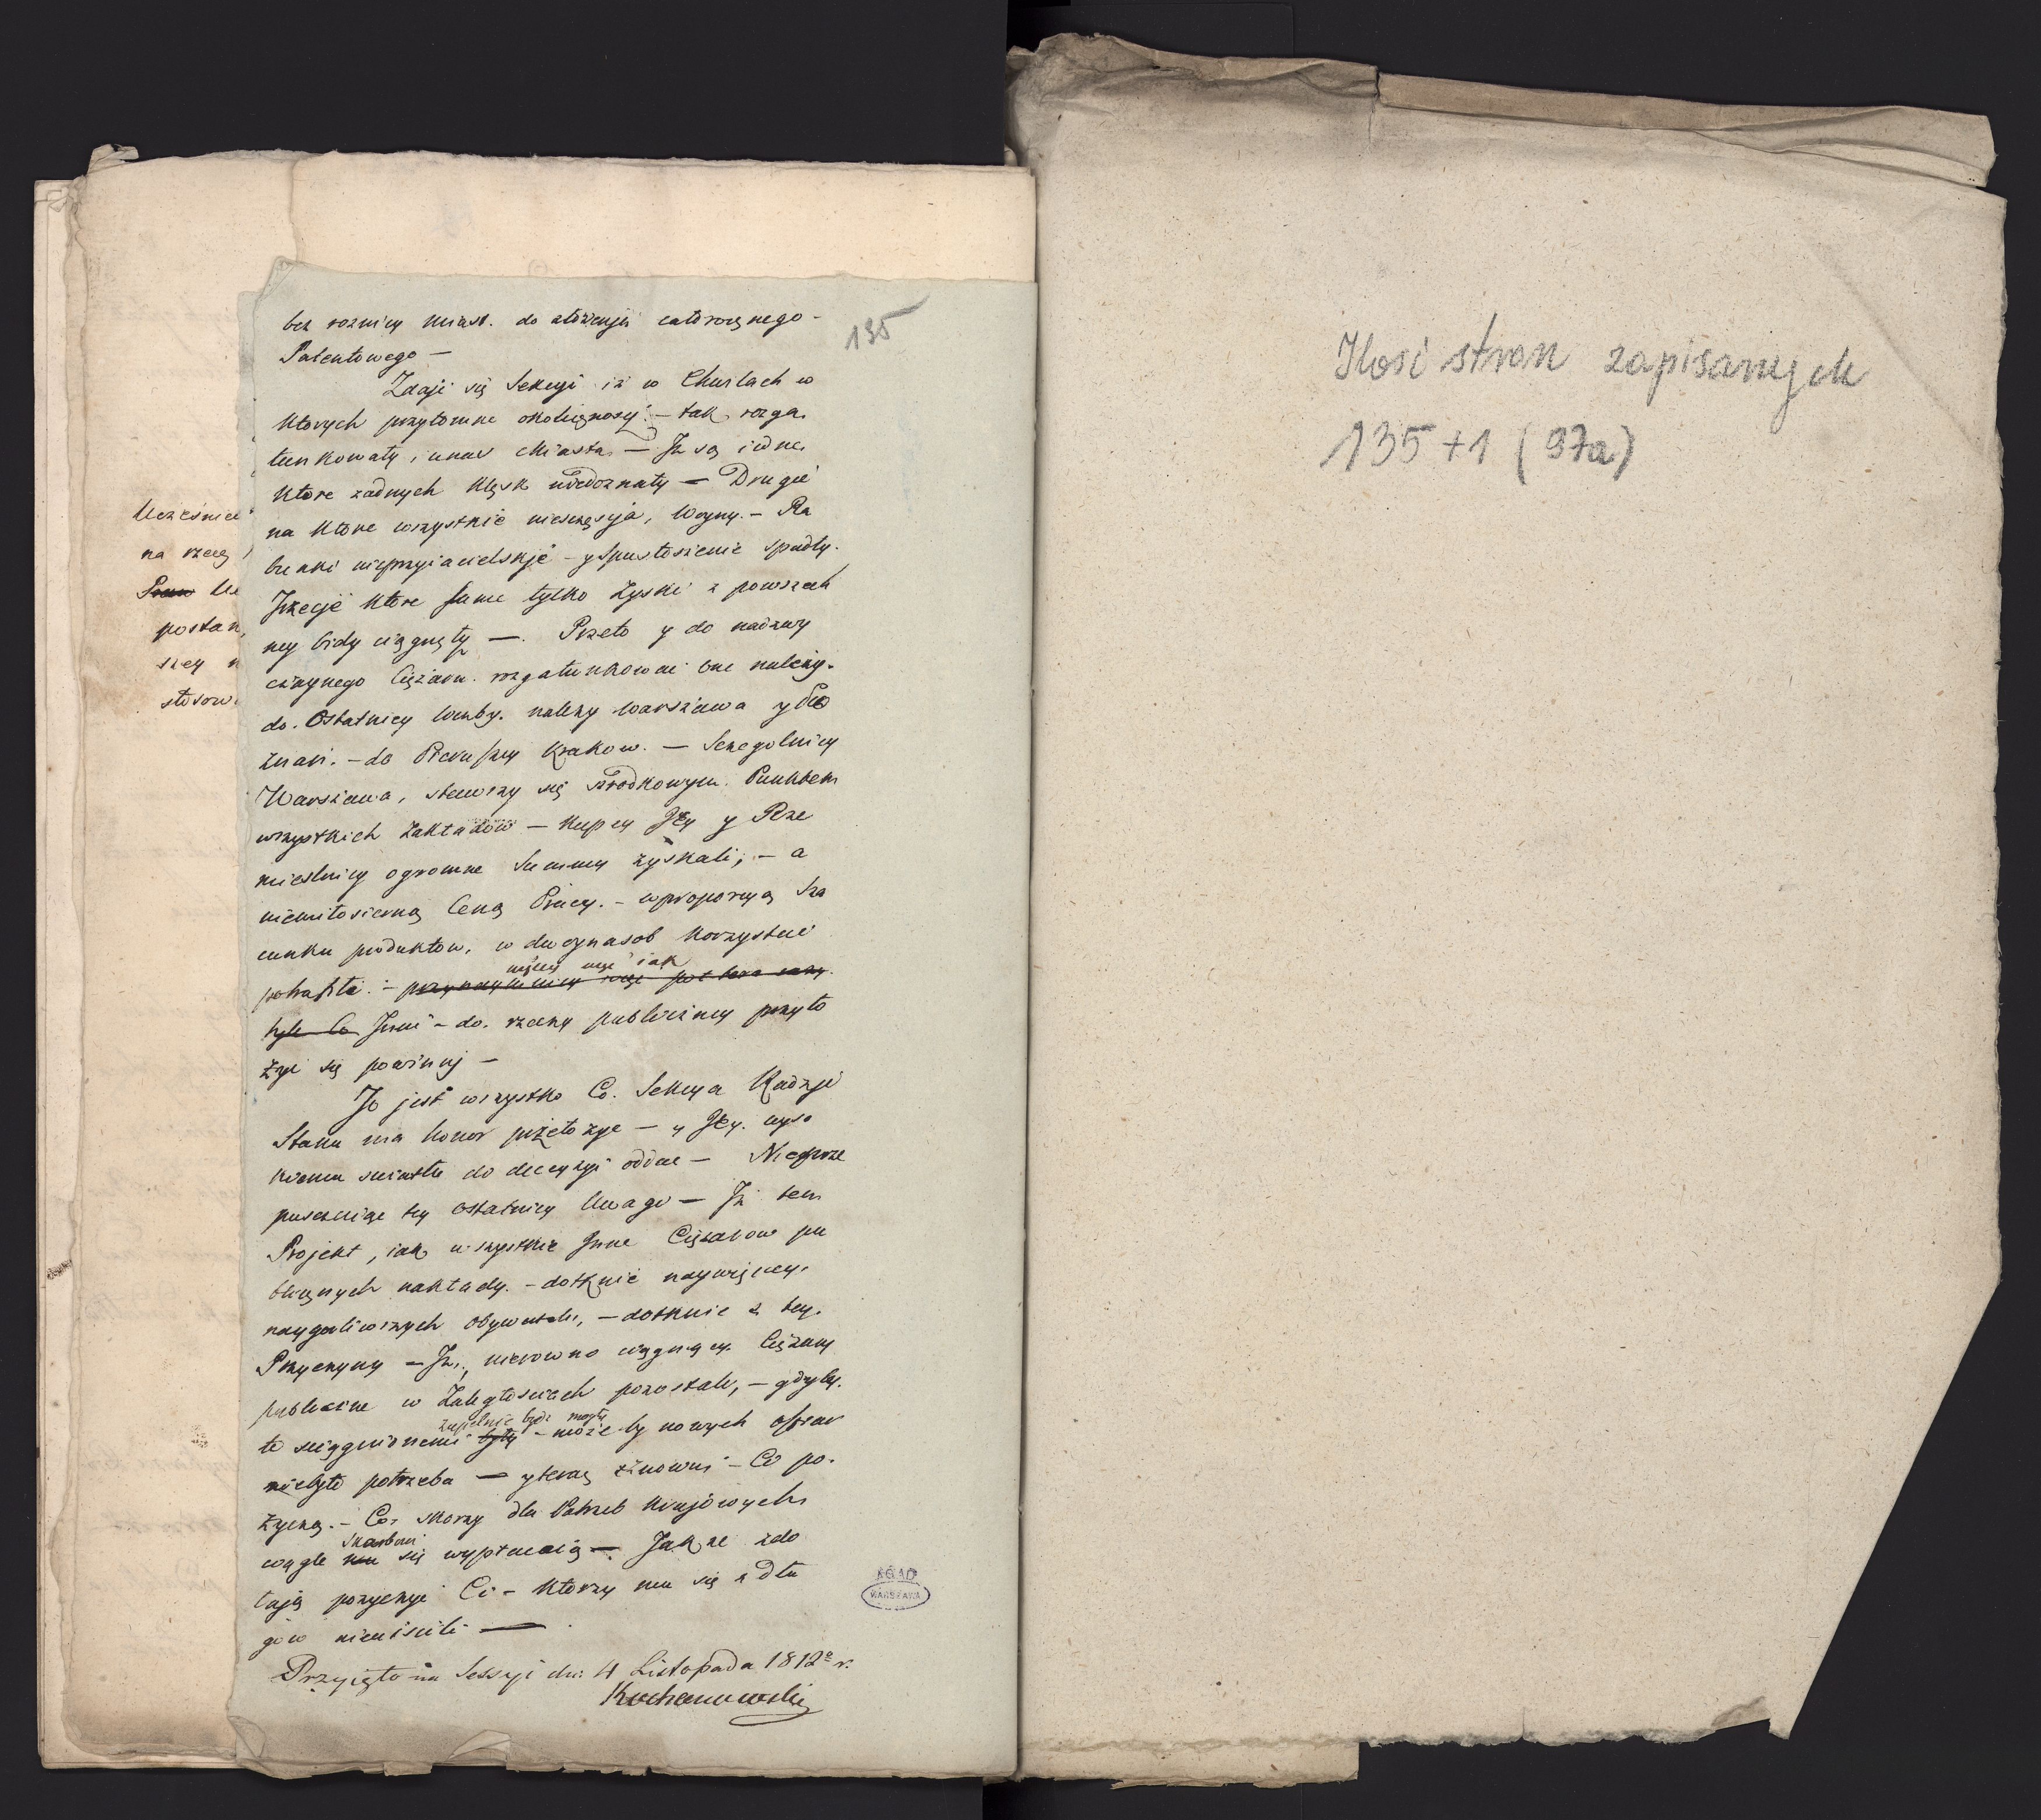 135
bez roznicy Miast. do złożenia całorocznego -
Patentowego —
Zdaje się Sekcyi iż w Chwilach w
ktorych przytomne okoliczności - tak rozga
tunkowały, unas Miasta — Iż są iedne
ktore zadnych klęsk niedoznały — Drugie
na ktore wszystkie nieszczęscia, Woyny. - Ra
bunki nieprzyiacielskie - y Spustoszenie spadły.
Trzecie ktore same tylko Zyski z powszech
ney bidy ciągnęły —. Przeto y do nadzwy
czaynego Ciężaru. rozgatunkować one należy.
do. Ostatniey liczby. należy Warszawa y Po
znań. - do Pierwszey Krakow. — Szczegolniey
Warszawa, stawszy się srzodkowym Punktem
wszystkich zakładow — Kupcy Jey y Rze
mieslnicy ogromne Summy zyskali, - a
niemiłosierną Ceną Pracy. - w proporcyą Sza
cunku produktow, w dwoynasob korzystać
potrafili. -
więcey niż iak
Inni - do. rzeczy publiczney przyło
żyć się powinny —
To jest wszystko Co. Sekcya Radzie
Stanu ma honor przełożyć — y Jey. wyso
kiemu swiatłu do decyzyi oddać — Nieprze
puszczaiąc tey ostatniey Uwagi — Iż ten
Projekt, iak wszystkie Inne Ciężarow pu
blicznych nakłady. - dotknie naywięcey.
naygorliwszych obywateli, — dotknie z tey.
Przyczyny — Iż, nierowno ciągnący Ciężary
publiczne w Zaległosciach pozostali, — gdyby.
zupełnie bydź mogły
te sciągnionemi były - może by nowych ofiar
niebyło potrzeba — y teraz znowu - Co po.
życzą. - Co. skorzy dla Potrzeb Krajowych
Skarbowi
ciągle mu się wypłacaią —. Jakże zdo
łają pożyczyć Ci - ktorzy mu się z Dłu
gów nieuiscili —
Przyięto na Sessyi dn: 4 Listopada 1812º r.
Kochanowski
Uczesnic
na rzecz
postan
szey
stosow
AGAD
WARSZAWA
Ilość stron zapisanych
135 + 1 (97a)